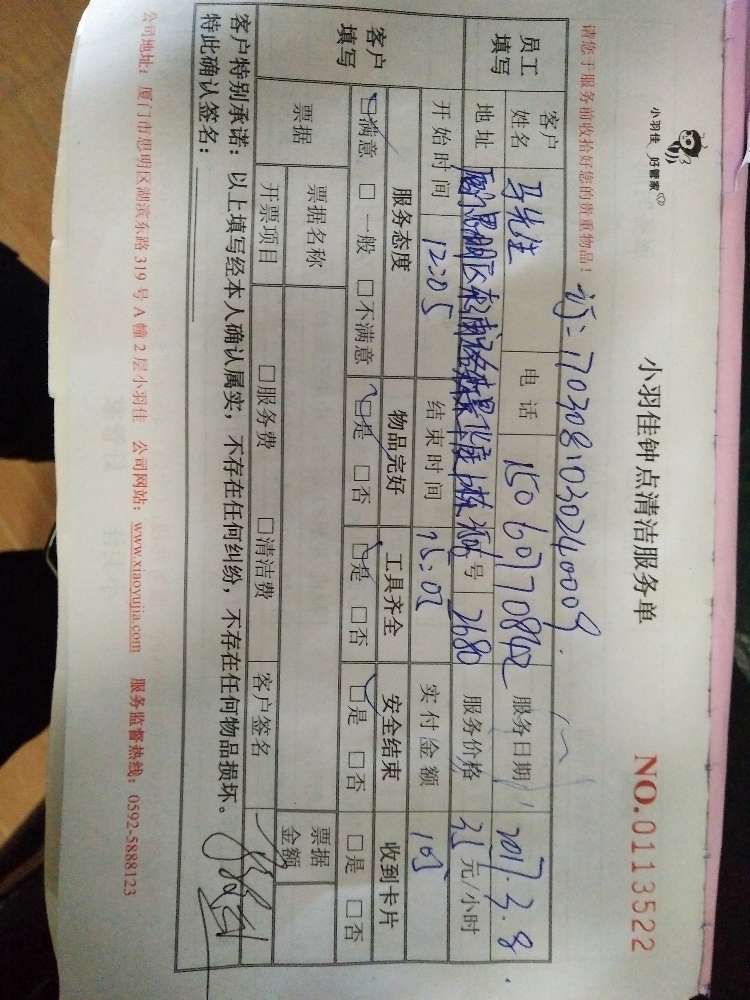 小羽佳 好管家
小羽佳钟点清洁服务单
NO.0113522
请您于服务前收拾好您的贵重物品！
订：1703081030240009
员工填写
客户姓名 马先生 电话 服务日期 2017.3.8
地址 号 2680 服务价格 35元/小时
开始时间 12:05 结束时间 15:05 实付金额 105
客户填写
服务态度 物品完好 工具齐全 安全结束 收到卡片
□满意 □一般 □不满意 □是 □否 □是 □否 □是 □否 □是 □否
票据 票据名称 客户签名 票据金额
开票项目 □服务费 □清洁费
客户特别承诺：以上填写经本人确认属实，不存在任何纠纷，不存在任何物品损坏。
特此确认签名：
公司地址：厦门市思明区湖滨东路319号A幢2层小羽佳 公司网站：www.xiaoyujia.com 服务监督热线：0592-5888123